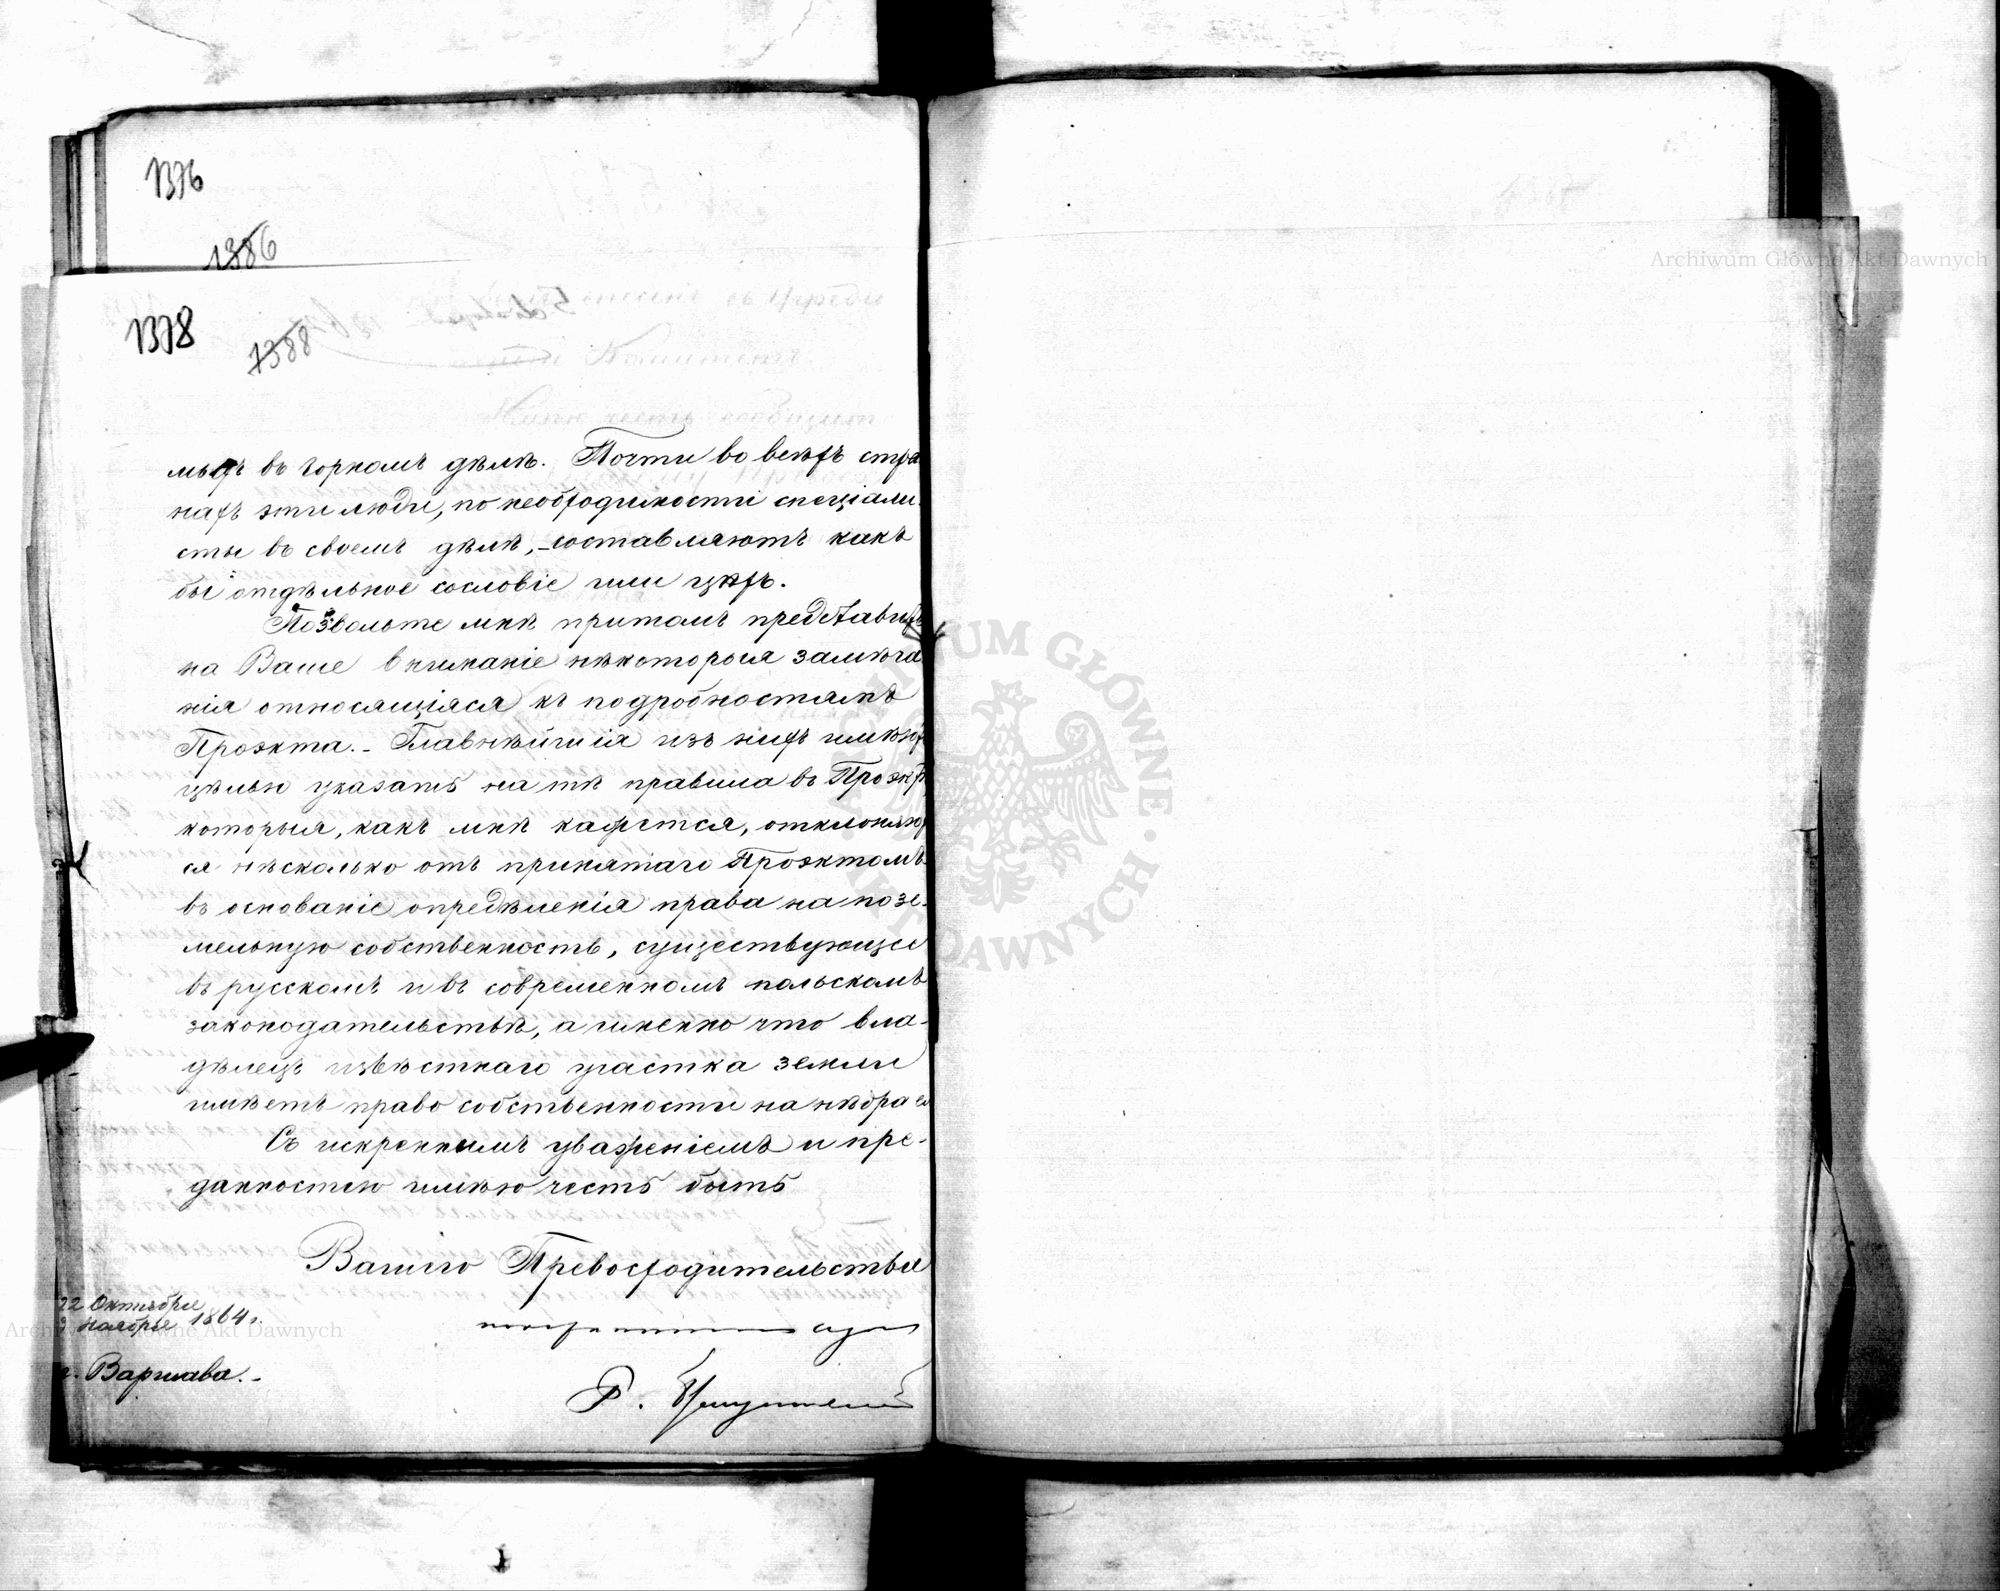 1376
1386
1378
1388
мыхъ въ горномъ дѣлѣ. Почти во всѣхъ стра
нахъ эти люди, по необходимости спеціали
сты въ своемъ дѣлѣ, составляютъ какъ
бы отдѣльное сословіе или цехъ.
Позвольте мнѣ притомъ представить
на Ваше вниманіе нѣкоторыя замѣча
нія относящіяся къ подробностямъ
Проэкта. - Главнѣйшія изъ нихъ имѣютъ
цѣлью указать на тѣ правила въ Проэктѣ
которыя, какъ мнѣ кажется, отклоняют
ся нѣсколько отъ принятаго Проэктомъ
въ основаніе опредѣленія права на позе-
мельную собственность, существующее
въ русскомъ и въ современномъ польскомъ
законодательствѣ, а именно что вла-
дѣлецъ извѣстнаго участка земли
имѣетъ право собственности на нѣдра ея
Съ искреннимъ уваженіемъ и пре-
данностью имѣю честь быть
Вашего Превосходительства
22 Октября
3 Ноября 1864 г.
г. Варшава. -
Archiwum Główne Akt Dawnych
Archiwum Główne Akt Dawnych
ARCHIWUM GŁÓWNE AKT DAWNYCH